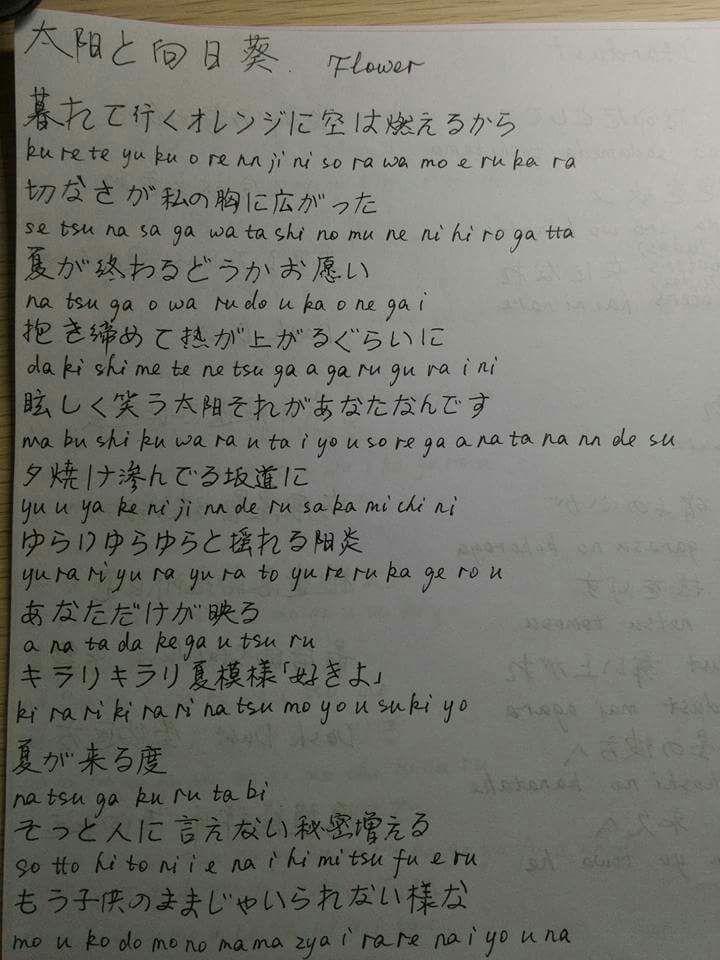 太阳と向日葵. Flower
暮れて行くオレンジに空は燃えるから
ku re te yu ku o re nn ji ni so ra wa mo e ru ka ra
切なさが私の胸に広がった
se tsu na sa ga wa ta shi no mu ne ni hi ro ga tta
夏が終わるどうかお願い
na tsu ga o wa ru do u ka o ne ga i
抱き締めて热が上がるぐらいに
da ki shi me te ne tsu ga a ga ru gu ra i ni
眩しく笑う太阳それがあなたなんです
ma bu shi ku wa ra u ta i yo u so re ga a na ta na nn de su
夕焼け滲んでる坂道に
yu u ya ke ni ji nn de ru sa ka mi chi ni
ゆらりゆらゆらと揺れる阳炎
yu ra ri yu ra yu ra to yu re ru ka ge ro u
あなただけが映る
a na ta da ke ga u tsu ru
キラリキラリ夏模様「好きよ」
ki ra ri ki ra ri na tsu mo yo u su ki yo
夏が来る度
na tsu ga ku ru ta bi
そっと人に言えない秘密増える
so tto hi to ni i e na i hi mi tsu fu e ru
もう子供のままじゃいられない様な
mo u ko do mo no ma ma zya i ra re na i yo u na